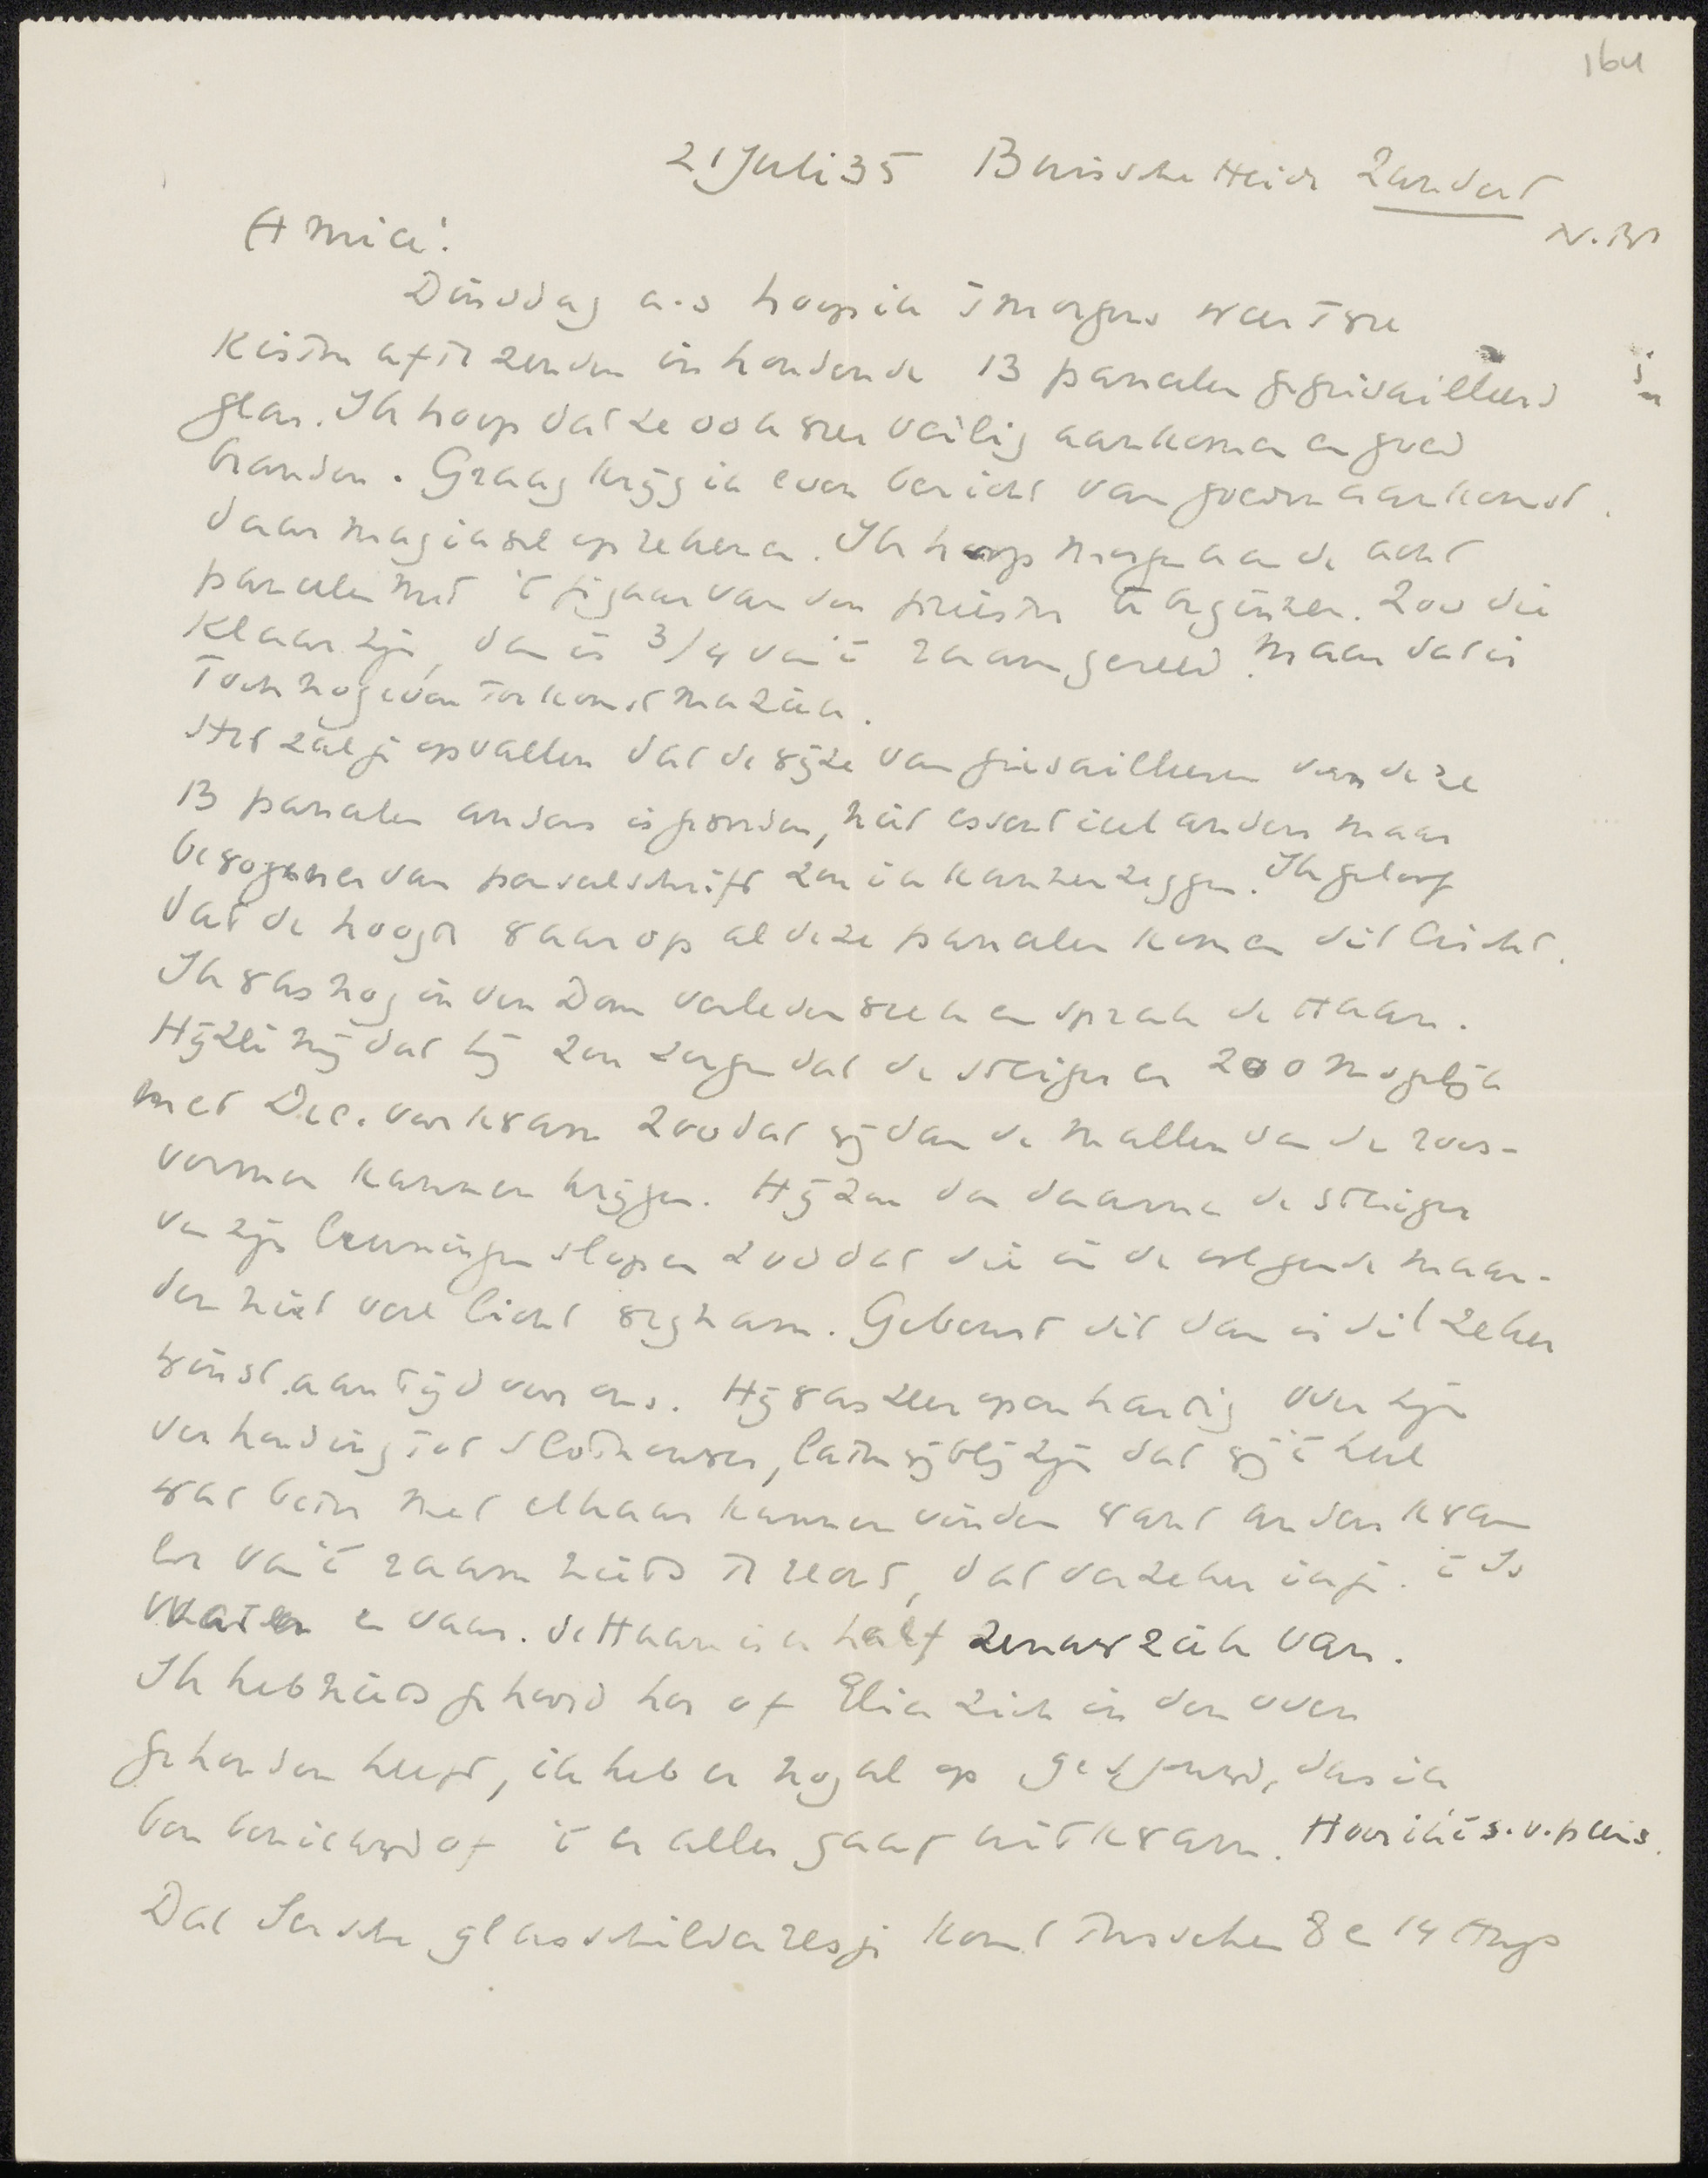 164
21 Juli 35 Buische Heide Zundert
N. Br
Amice!
Dinsdag a.s hoop ik 's morgens weer twee
kisten af te zenden inhoudende 13 paneelen gegrisailleerd
glas. Ik hoop dat ze ook weer veilig aankomen en goed
branden. Graag krijg ik even bericht van goede aankomst.
daar mag ik wel op rekenen. Ik hoop morgen aan de acht
paneelen met 't figuur van den priester te beginnen. Zoo die
klaar zijn, dan is 3/4 van 't raam gereed. Maar dat is
toch nog even toekomstmuziek.
Het zal je opvallen dat de wijze van grisailleeren van deze
13 paneelen anders is geworden, niet essentieel anders maar
bewogener van penseelschrift zou ik kunnen zeggen. Ik geloof
dat de hoogte waarop al deze paneelen komen dit eischt.
Ik was nog in den Dom verleden week en sprak de Haan.
Hij zei mij dat hij zou zorgen dat de steiger er zoo mogelijk
met Dec. voor kwam zoodat wij dan de mallen van de roos-
vormen kunnen krijgen. Hij zou dan daarna de steiger
van zijn leuningen slopen zoodat die in de volgende maan-
den niet veel licht wegnam. Gebeurt dit dan is dit zeker
winst aan tijd voor ons. Hij was zeer openhartig over zijn
verhouding tot Slothouwer, laten wij blij zijn dat wij 't heel
wat beter met elkaar kunnen vinden want anders kwam
er van 't raam niets terecht, dat verzeker ik je. 't Is
water en vuur. de Haan is er half zenuwziek van.
Ik heb niets gehoord hoe of Elia zich in den oven
gehouden heeft, ik heb er nogal op gespeurd, dus ik
ben benieuwd of 't er alles gaaf uitkwam. Hoor ik 't s.v.p. eens.
Dat glasschilderesje komt tusschen 8 en 14 Aug